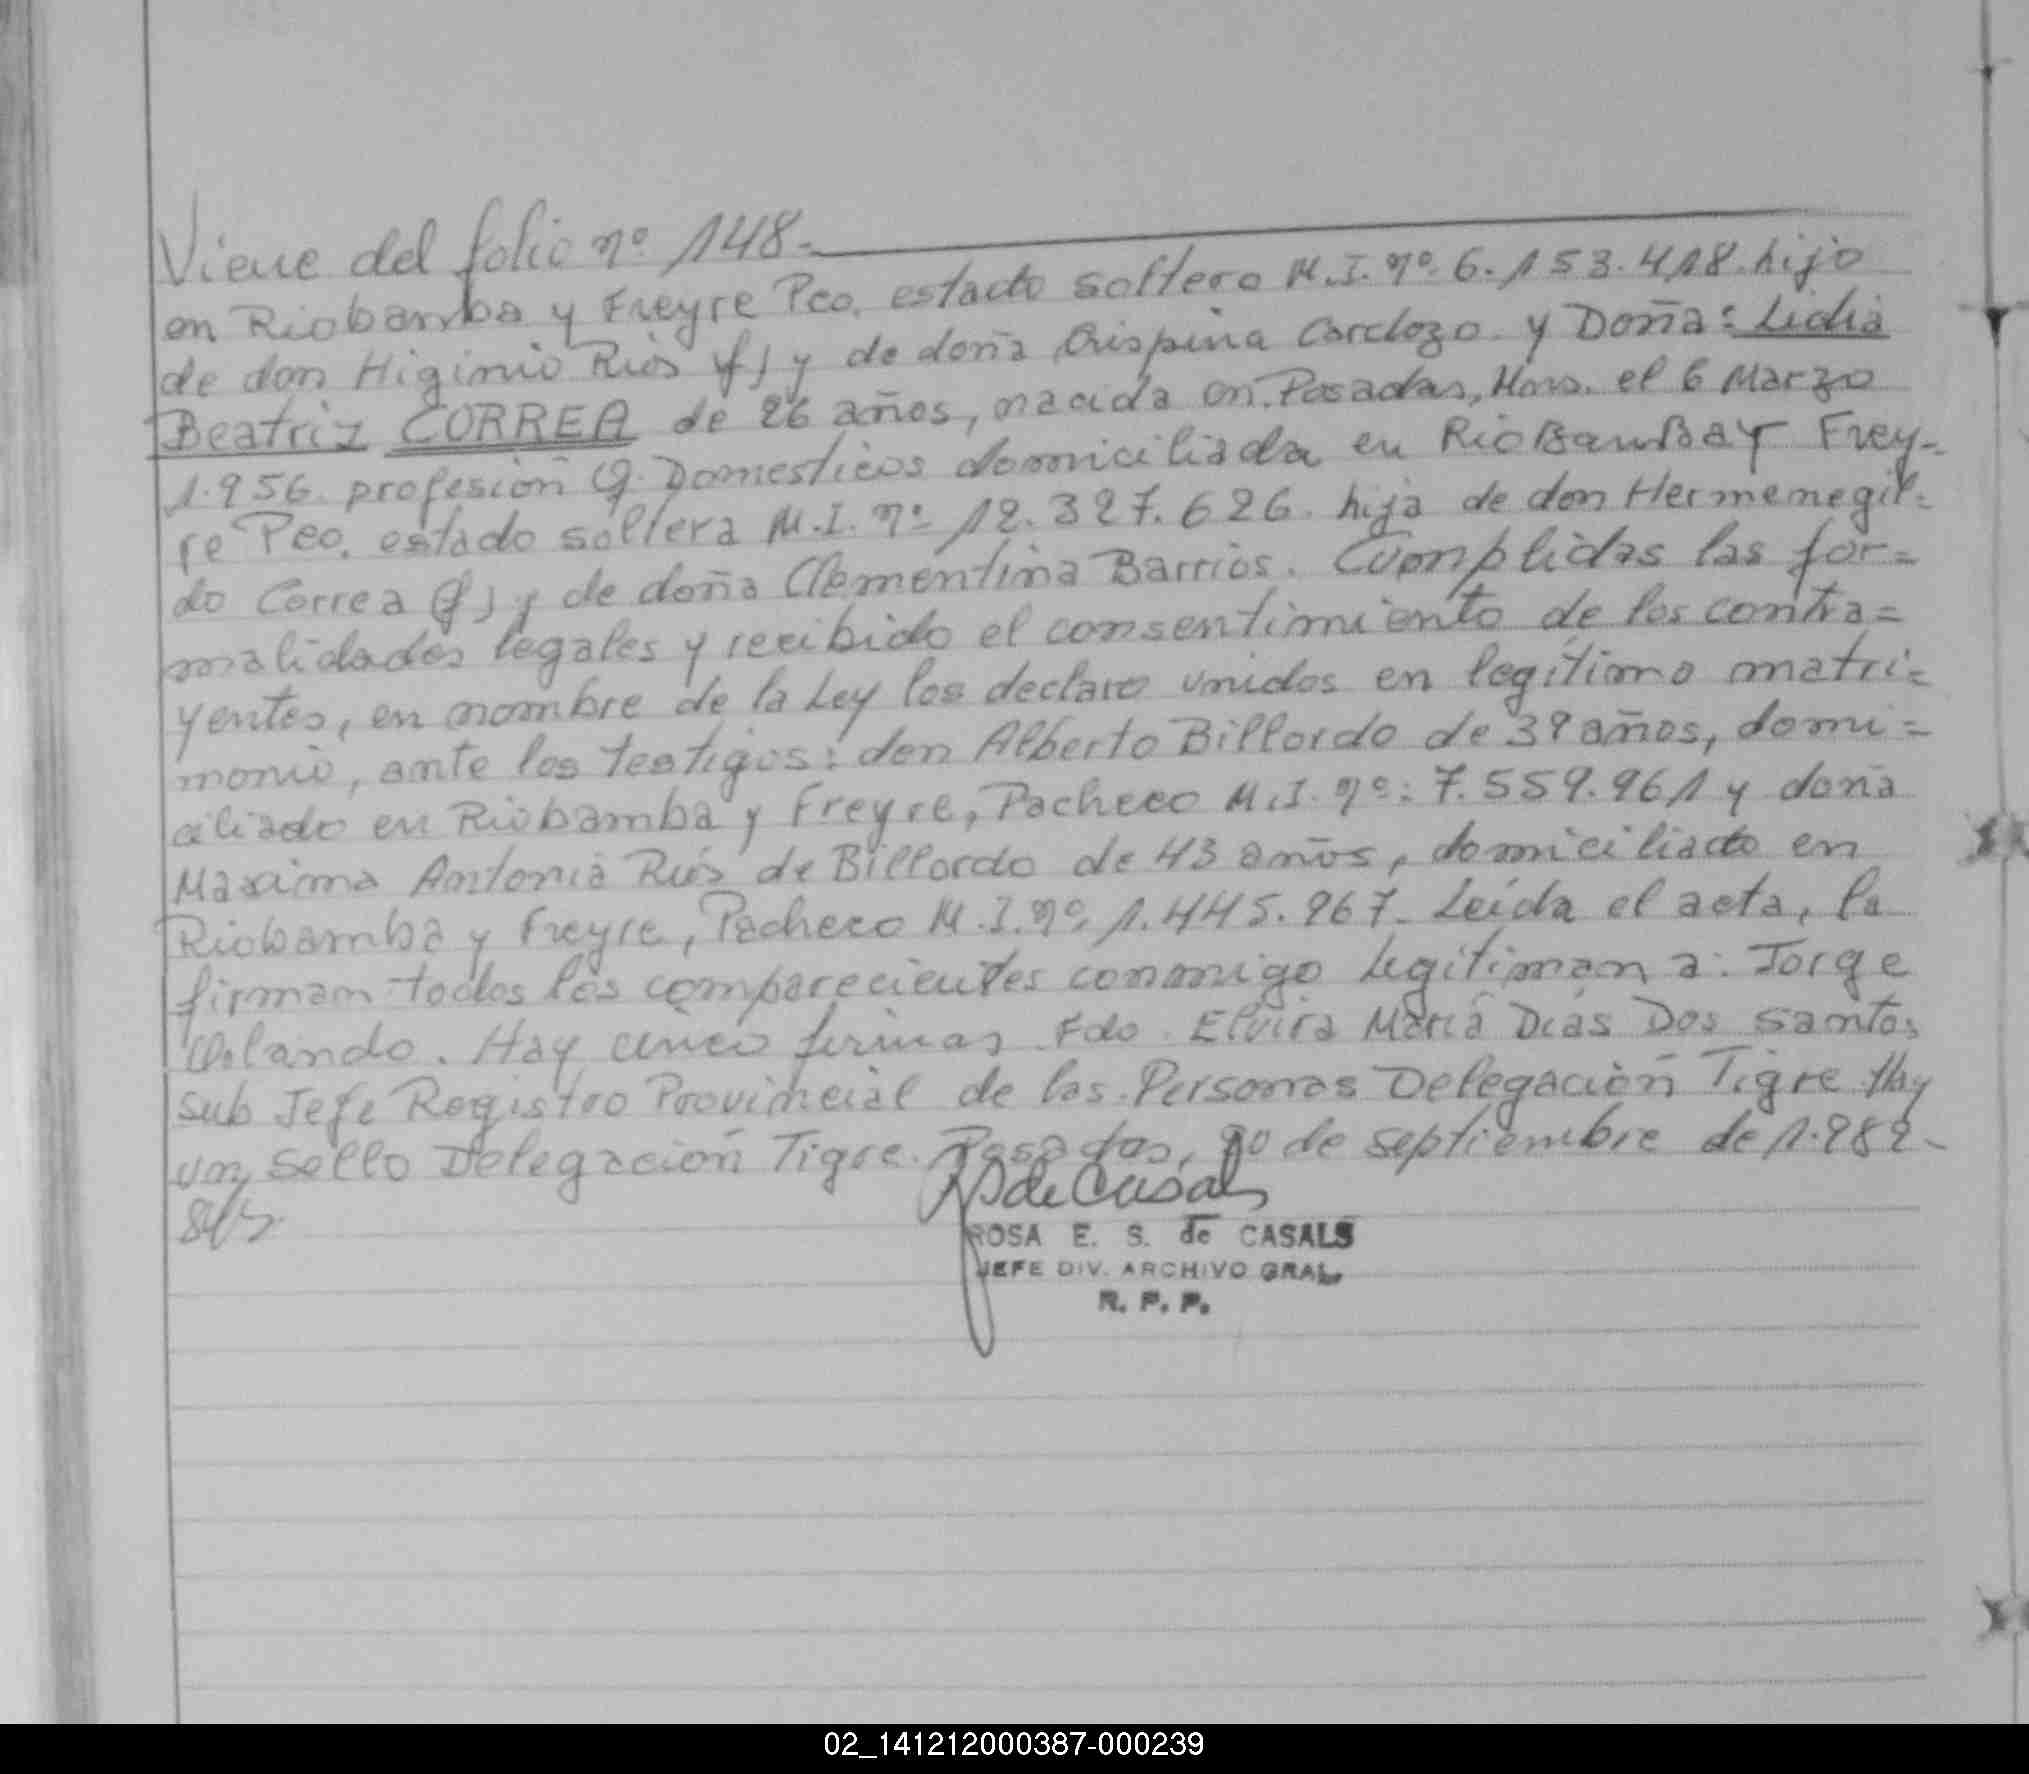 Viene del folio nº 148.-
en Riobamba y Freyre Pco. estado soltero M.I. nº. 6.153.418. hijo
de don Higinio Rios (f) y de doña Crispina Cardozo y Doña: Lidia
Beatriz CORREA de 26 años, nacida en Posadas, Mnes. el 6 Marzo
1.956. profesión Q. Domesticos domiciliada en RioBamBa y Frey-
re Pco. estado soltera M.I. nº 12.327.626. hija de don Hermenegil=
do Correa (f) y de doña Clementina Barrios. Cumplidas las for=
malidades legales y recibido el consentimiento de los contra=
yentes, en nombre de la Ley los declaro unidos en legítimo matri=
monio, ante los testigos: don Alberto Billordo de 39 años, domi=
ciliado en Riobamba y Freyre, Pacheco M.I. nº: 7.559.961 y doña
Maxima Antonia Rios de Billordo de 43 años, domiciliado en
Riobamba y Freyre, Pacheco M.I. nº. 1.445.967. Leída el acta, la
firman todos los comparecientes conmigo Legitiman a: Jorge
Orlando. Hay cinco firmas Fdo. Elvira María Días Dos Santos
Sub Jefe Registro Provincial de las Personas Delegación Tigre Hay
un Sello Delegación Tigre. Posadas, 20 de septiembre de 1.982-
de Casals
ROSA E. S. de CASALS
JEFE DIV. ARCHIVO GRAL.
R. P. P.
02_141212000387-000239